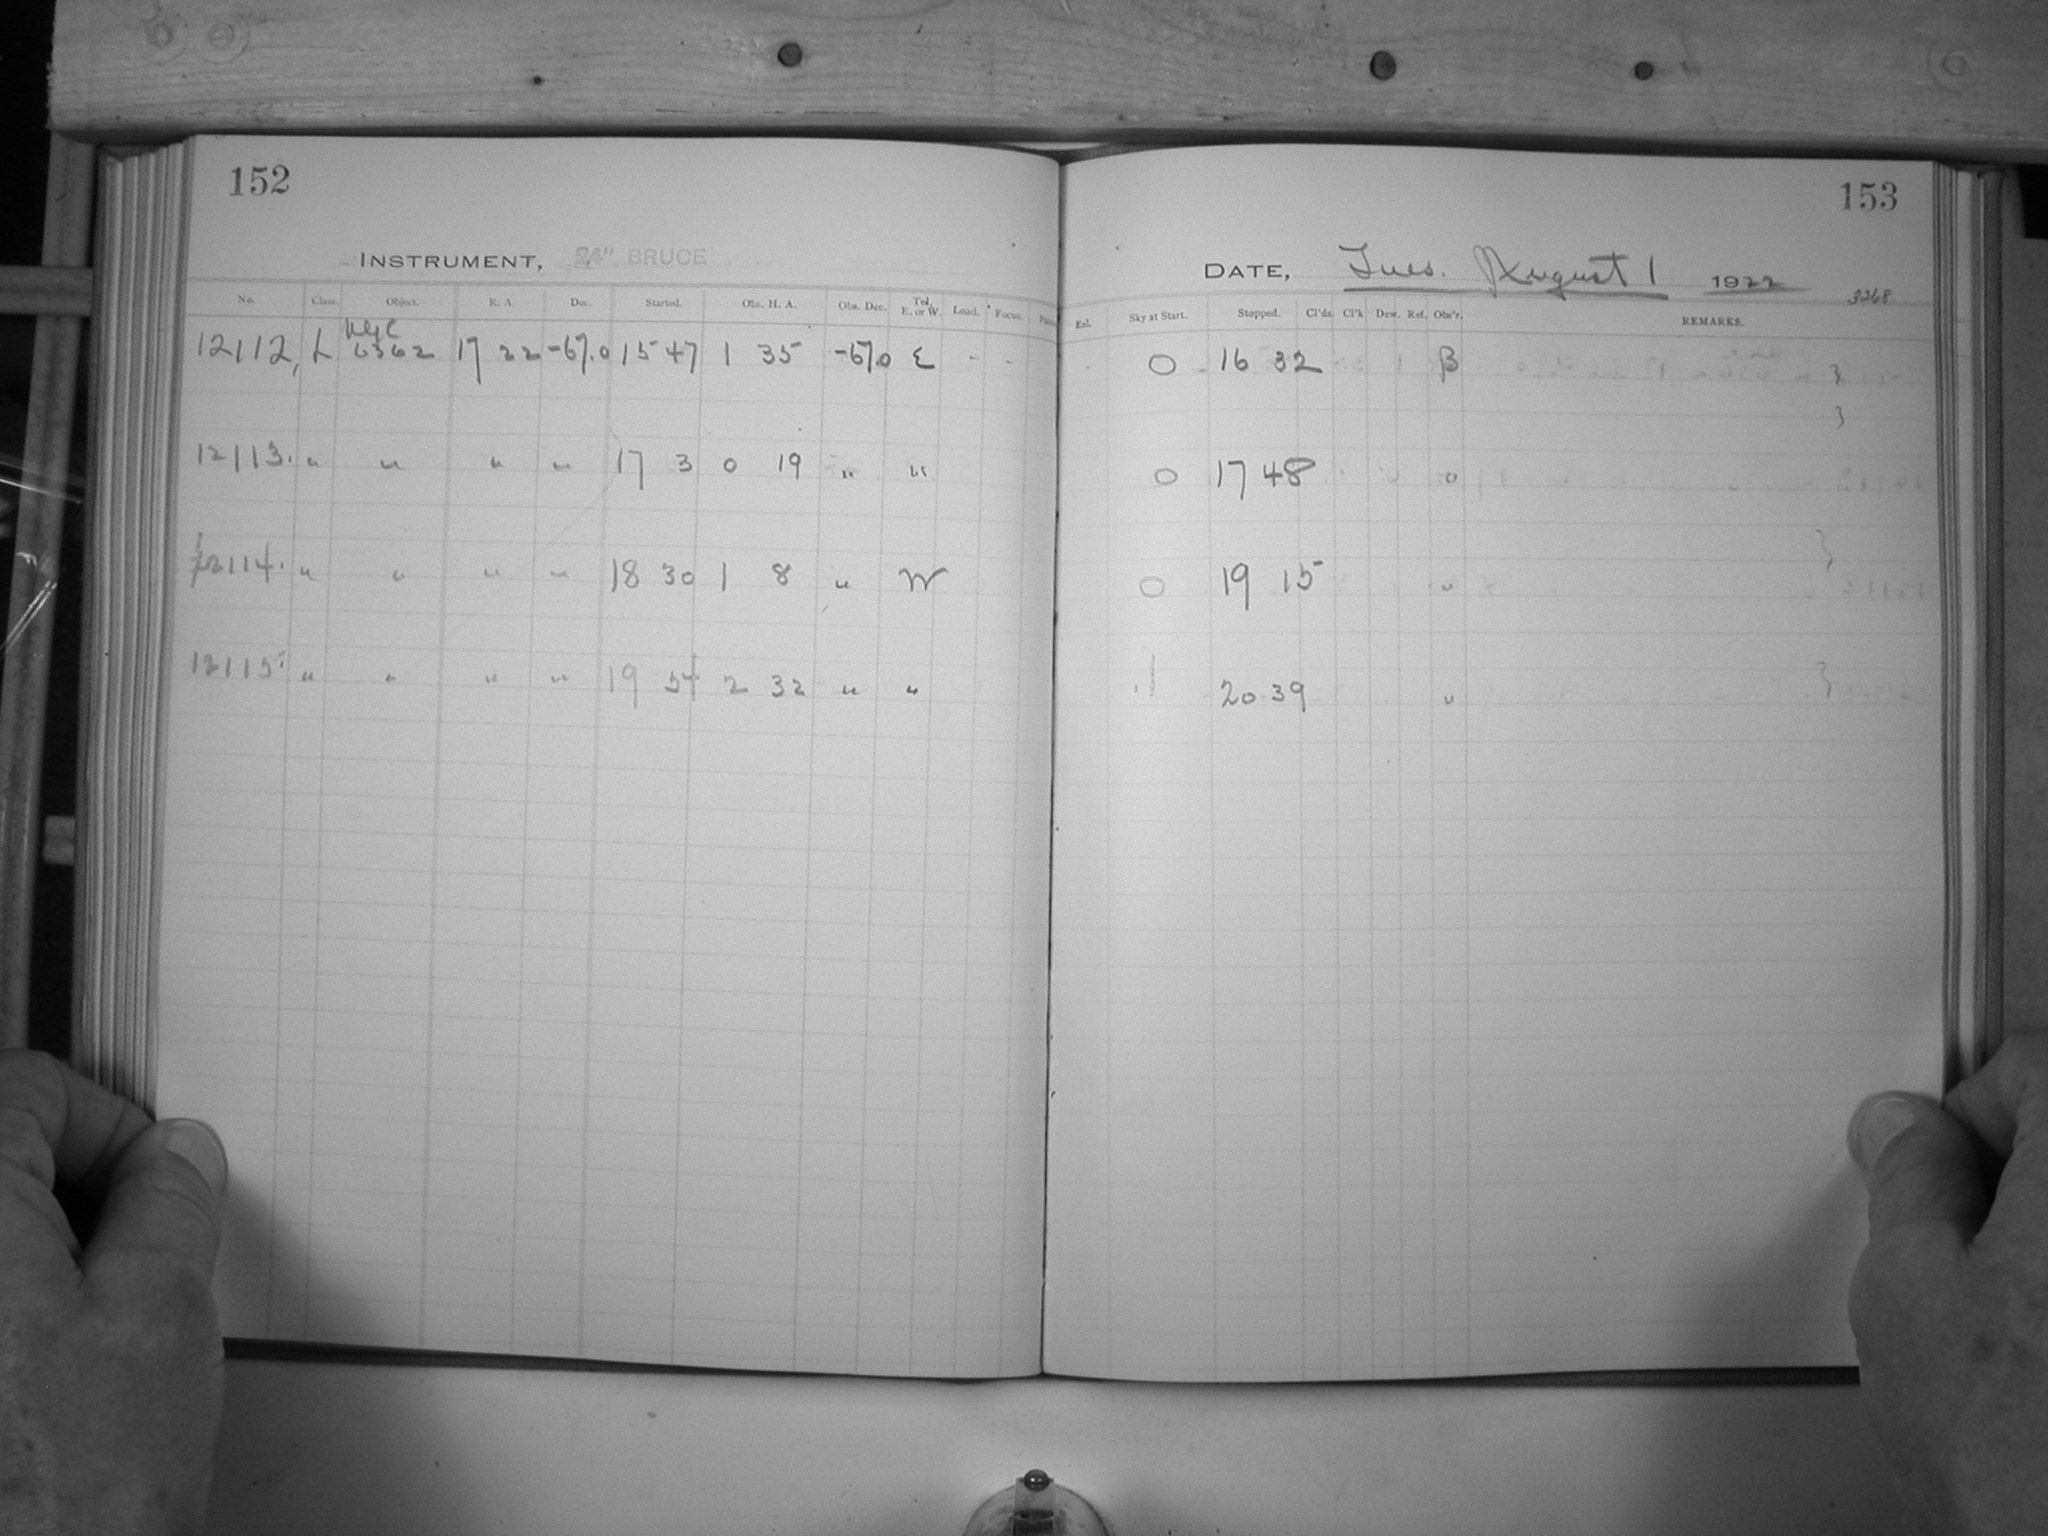 152
INSTRUMENT, 24" BRUCE
No. Class. Object. R. A. Dec. Started. Obs. H. A. Obs. Dec. Tel. E. or W. Load. Focus.
NGC
12112, L 6362 17 22 -67.0 15 47 1 35 -67.0 E - -
12113. " " " " 17 3 0 19 " "
12114. " " " " 18 30 1 8 " W
12115 " " " " 19 54 2 32 " "
153
DATE, Tues. August 1 1922
3268
Exl. Sky at Start. Stopped. Cl'ds. Cl'k Dew. Ref. Obs'r. REMARKS.
0 16 32 β }
}
0 17 48 "
}
0 19 15 "
20 39 " }